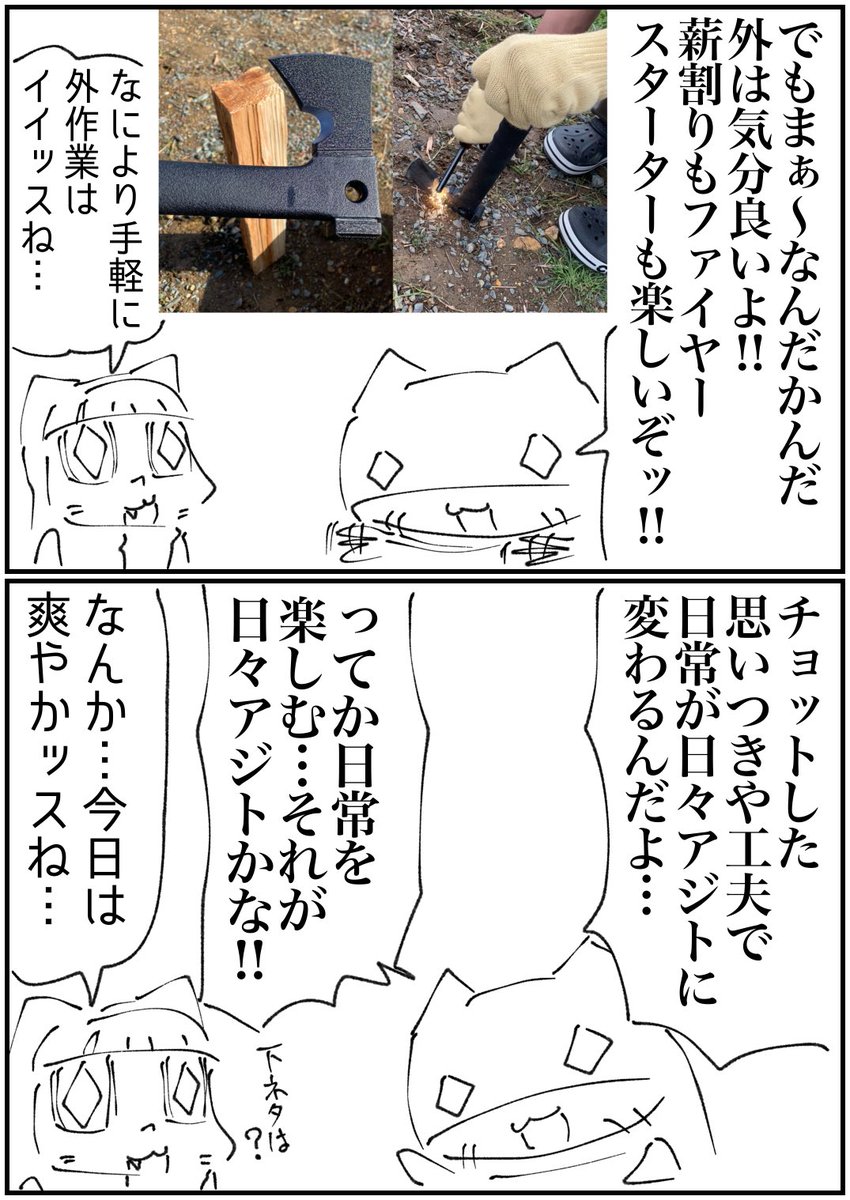 でもまぁ～なんだかんだ
外は気分良いよ!!
薪割りもファイヤー
スターターも楽しいぞッ!!
なにより手軽に
外作業は
イイッスね…
チョットした
思いつきや工夫で
日常が日々アジトに
変わるんだよ…
ってか日常を
楽しむ…それが
日々アジトかな!!
下ネタは?
なんか…今日は
爽やかッスね…